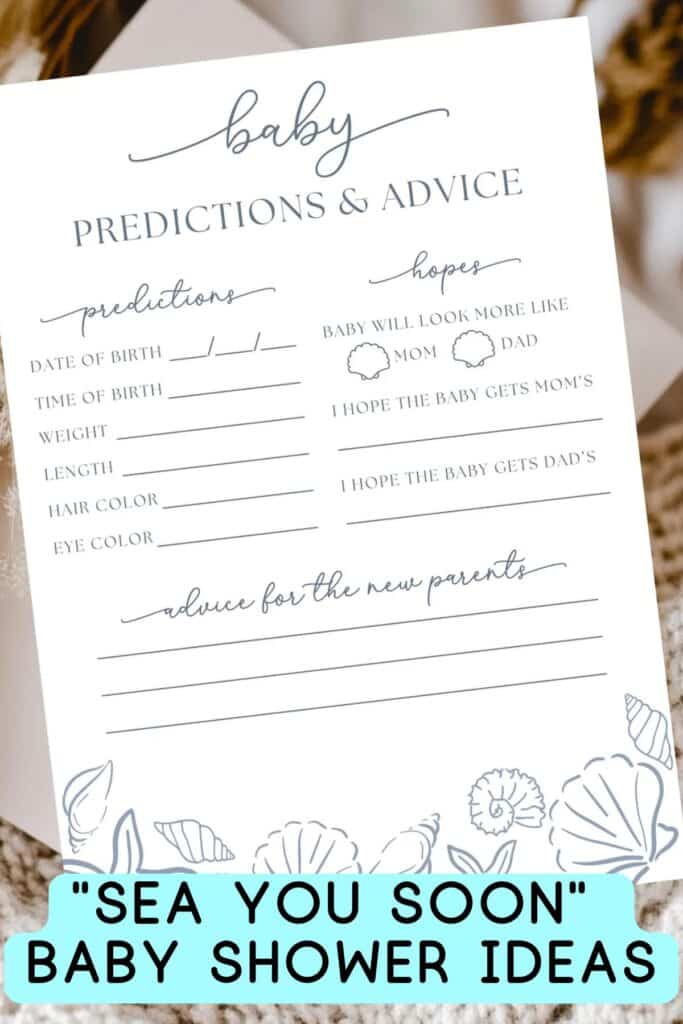 baby
PREDICTIONS & ADVICE
predictions
DATE OF BIRTH __/__/__
TIME OF BIRTH
WEIGHT
LENGTH
HAIR COLOR
EYE COLOR
hopes
BABY WILL LOOK MORE LIKE
MOM DAD
I HOPE THE BABY GETS MOM'S
I HOPE THE BABY GETS DAD'S
advice for the new parents
"SEA YOU SOON"
BABY SHOWER IDEAS